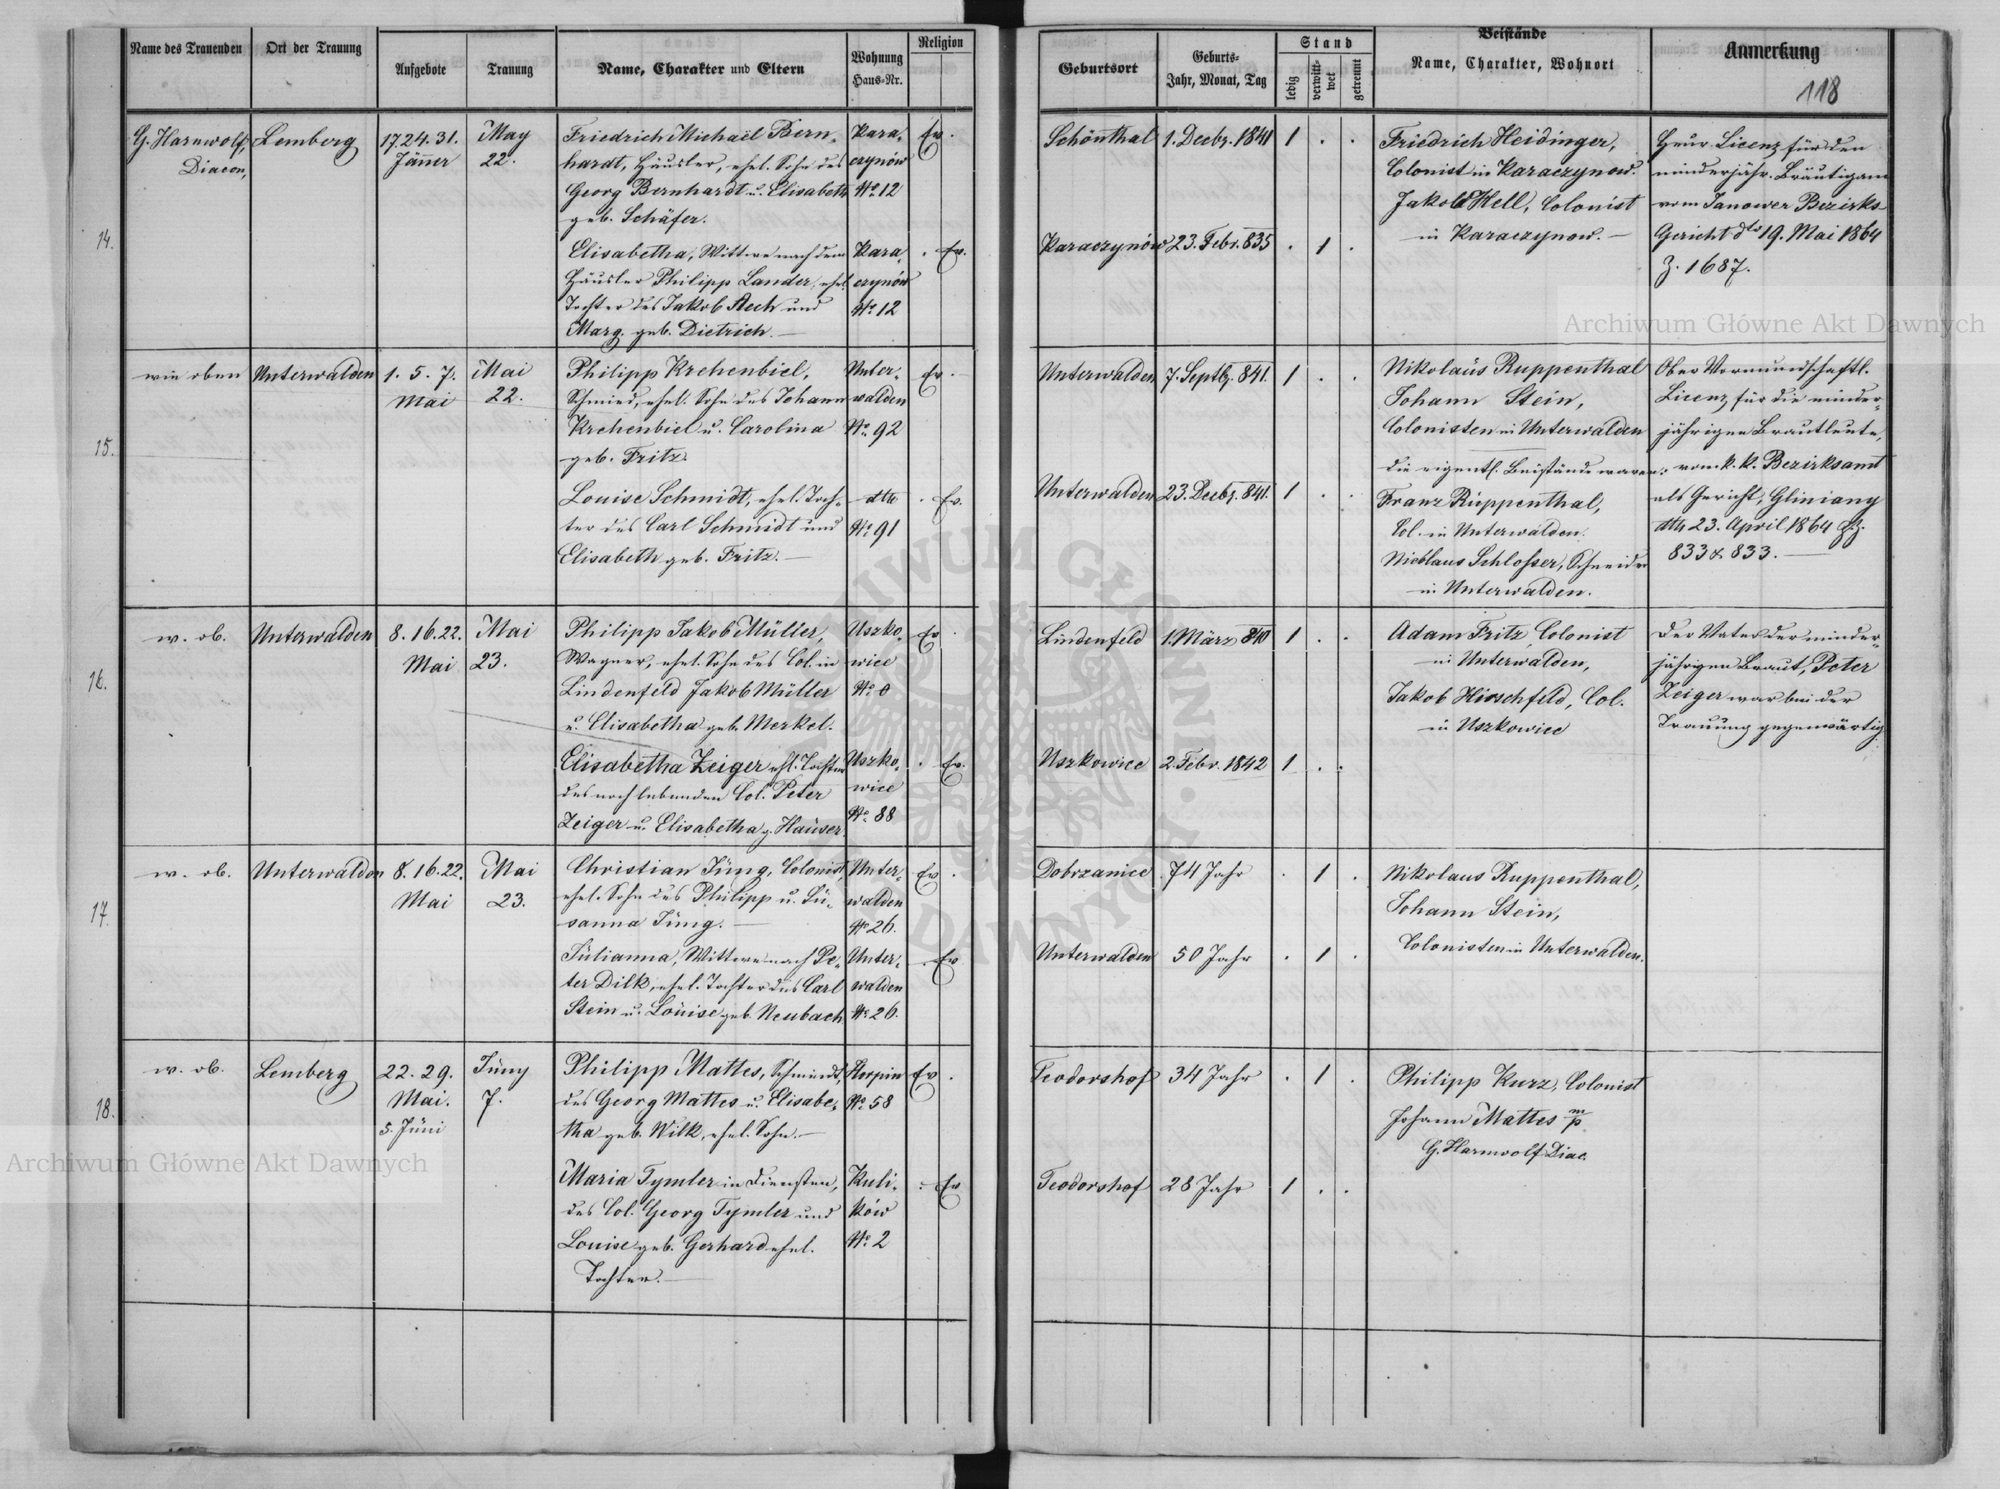 Name des Trauenden
Ort der Trauung
Aufgebote
Trauung
Name, Charakter und Eltern
Wohnung
Haus-Nr.
Religion
Geburtsort
Geburts-
Jahr, Monat, Tag
Stand
ledig
verwitt-
wet
getrennt
Beistände
Name, Charakter, Wohnort
Anmerkung
118
14.
G. Harnwolf,
Diacon,
Lemberg
17.24.31.
Jänner
May
22.
Friedrich Michaël Bern-
hardt, Häusler, ehel. Sohn des
Georg Bernhardt u. Elisabeth
geb. Schäfer.
Kara-
czynów
No 12
Ev.
Schönthal
1. Decbr. 1841
1 . .
Friedrich Heidinger,
Colonist in Karaczynow.
Jakob Hell, Colonist
in Karaczynow. —
Licenz für den
minderjähr. Bräutigam
vom Janower Bezirks-
Gericht dto 19. Mai 1864
Z. 1687.
Elisabetha, Wittwe nach dem
Häusler Philipp Lander, ehel.
Tochter des Jakob Aech und
Marg. geb. Dietrich. —
Kara-
czynów
No 12
. Ev.
Karaczynów
23. Febr. 835
. 1 .
15.
wie oben
Unterwalden
1. 5. 7.
Mai
Mai
22.
Philipp Krehenbiel,
Schmied, ehel. Sohn des Johann
Krehenbiel u. Carolina
geb. Fritz.
Unter-
walden
No 92
Ev.
Unterwalden
7. Septbr. 841.
1 . .
Nikolaus Ruppenthal
Johann Stein,
Colonisten in Unterwalden
die eigentl. Beistände waren:
Franz Ruppenthal,
Col. in Unterwalden.
Nicolaus Schlosser, Schneider
in Unterwalden.
Ober Vormundschaftl.
Licenz für die minder-
jährigen Brautleute,
vom k. k. Bezirksamt
als Gericht, Gliniany
dto 23. April 1864 Z.Z.
833 & 833. —
Louise Schmidt, ehel. Toch-
ter des Carl Schmidt und
Elisabeth geb. Fritz. —
dto
No 91
. Ev.
Unterwalden
23. Decbr. 841.
1 . .
16.
w. ob.
Unterwalden
8. 16. 22.
Mai
Mai
23.
Philipp Jakob Müller,
Wagner, ehel. Sohn des Col. in
Lindenfeld Jakob Müller
u. Elisabetha geb. Merkel.
Uszko-
wice
No 0
Ev.
Lindenfeld
1. März 840
1 . .
Adam Fritz, Colonist
in Unterwalden,
Jakob Hirschfeld, Col.
in Uszkowice
Der Vater der minder-
jährigen Braut, Peter
Zeiger war bei der
Trauung gegenwärtig
Elisabetha Zeiger ehl. Tochter
des noch lebenden Col. Peter
Zeiger u. Elisabetha g. Hauser.
Uszko-
wice
No 88
. Ev.
Uszkowice
2. Febr. 1842
1 . .
17.
w. ob.
Unterwalden
8. 16. 22.
Mai
Mai
23.
Christian Jung, Colonist,
ehel. Sohn des Philipp u. Su-
sanna Jung. —
Unter-
walden
No 26.
Ev.
Dobrzanice
74 Jahr
. 1 .
Nikolaus Ruppenthal,
Johann Stein,
Colonisten in Unterwalden.
Julianna, Wittwe nach Pe-
ter Dilk, ehel. Tochter des Carl
Stein u. Louise geb. Neubach
Unter-
walden
No 26.
. Ev.
Unterwalden
50 Jahr
. 1 .
18.
w. ob.
Lemberg
22. 29.
Mai.
5. Juni
Juny
7.
Philipp Mattes, Schmiedt,
des Georg Mattes u. Elisabe-
tha geb. Wilk, ehel. Sohn. —
No 58
Ev.
Teodorshof
34 Jahr
. 1 .
Philipp Kurz, Colonist
Johann Mattes m/p
G. Harnwolf Diac.
Maria Tymler in Diensten,
des Col. Georg Tymler und
Louise geb. Gerhard ehel.
Tochter. —
Kuli-
ków
No 2
. Ev.
Teodorshof
28 Jahr
1 . .
Archiwum Główne Akt Dawnych
Archiwum Główne Akt Dawnych
ARCHIWUM GŁÓWNE AKT DAWNYCH